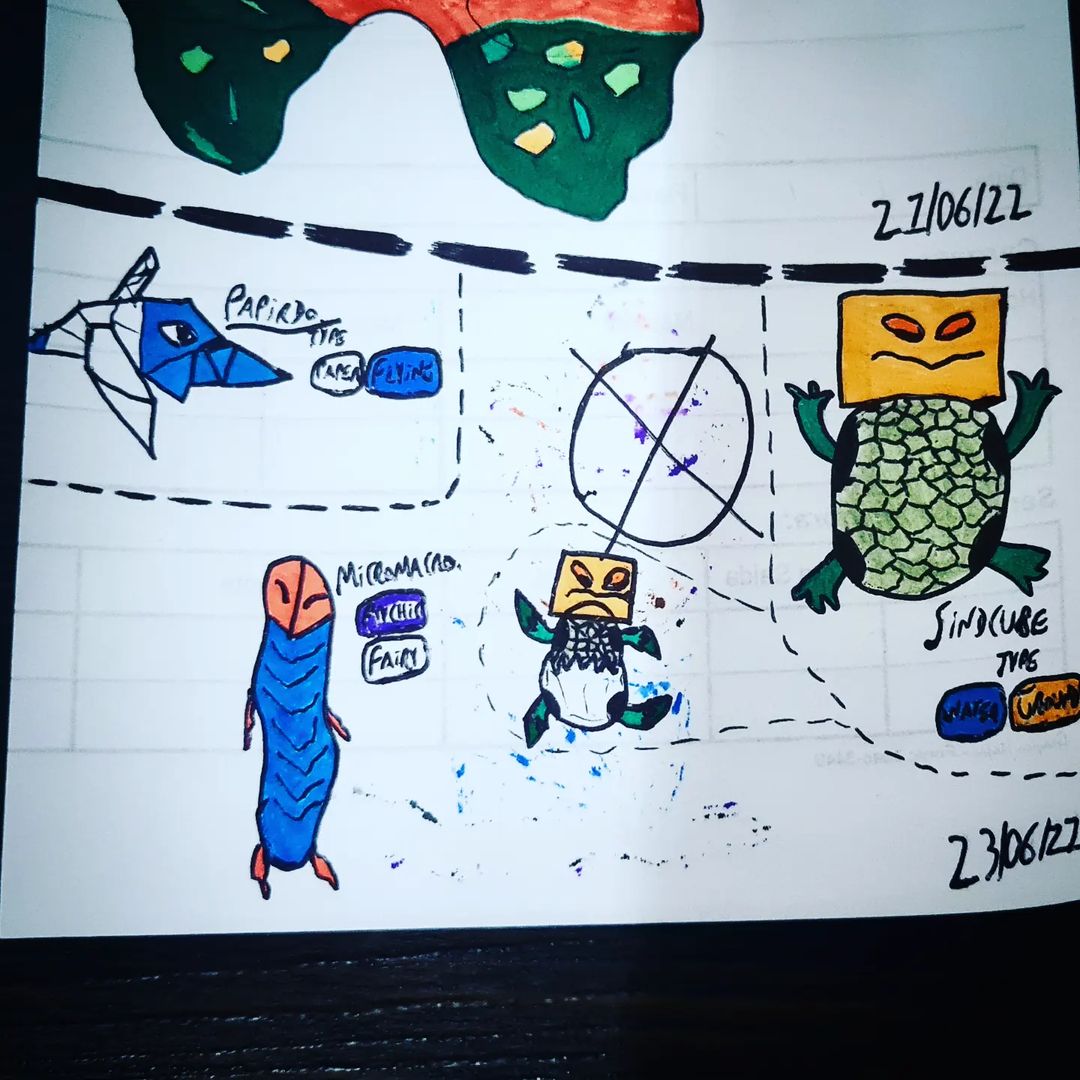 21/06/22
PAPIRDO
TYPE
PAPER FLYING
MICROMACRO.
PSYCHIC
FAIRY
SINDCUBE
TYPE
WATER GROUND
23/06/22